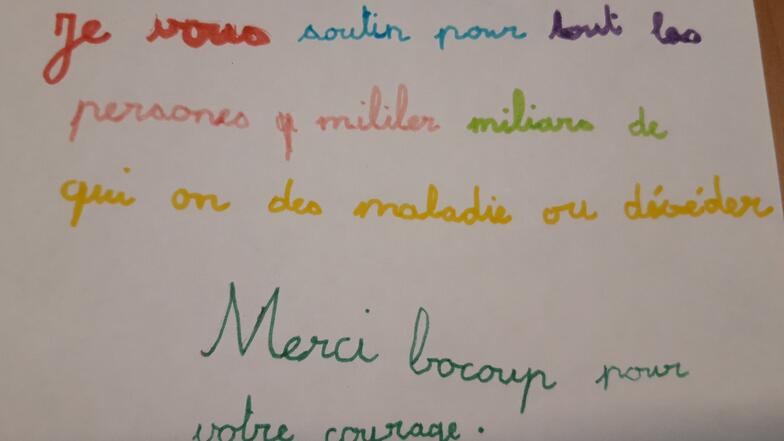 Je vous soutin pour tout les
persones q mililer miliars de
qui on des maladie ou dévéder
Merci bocoup pour
votre courage.